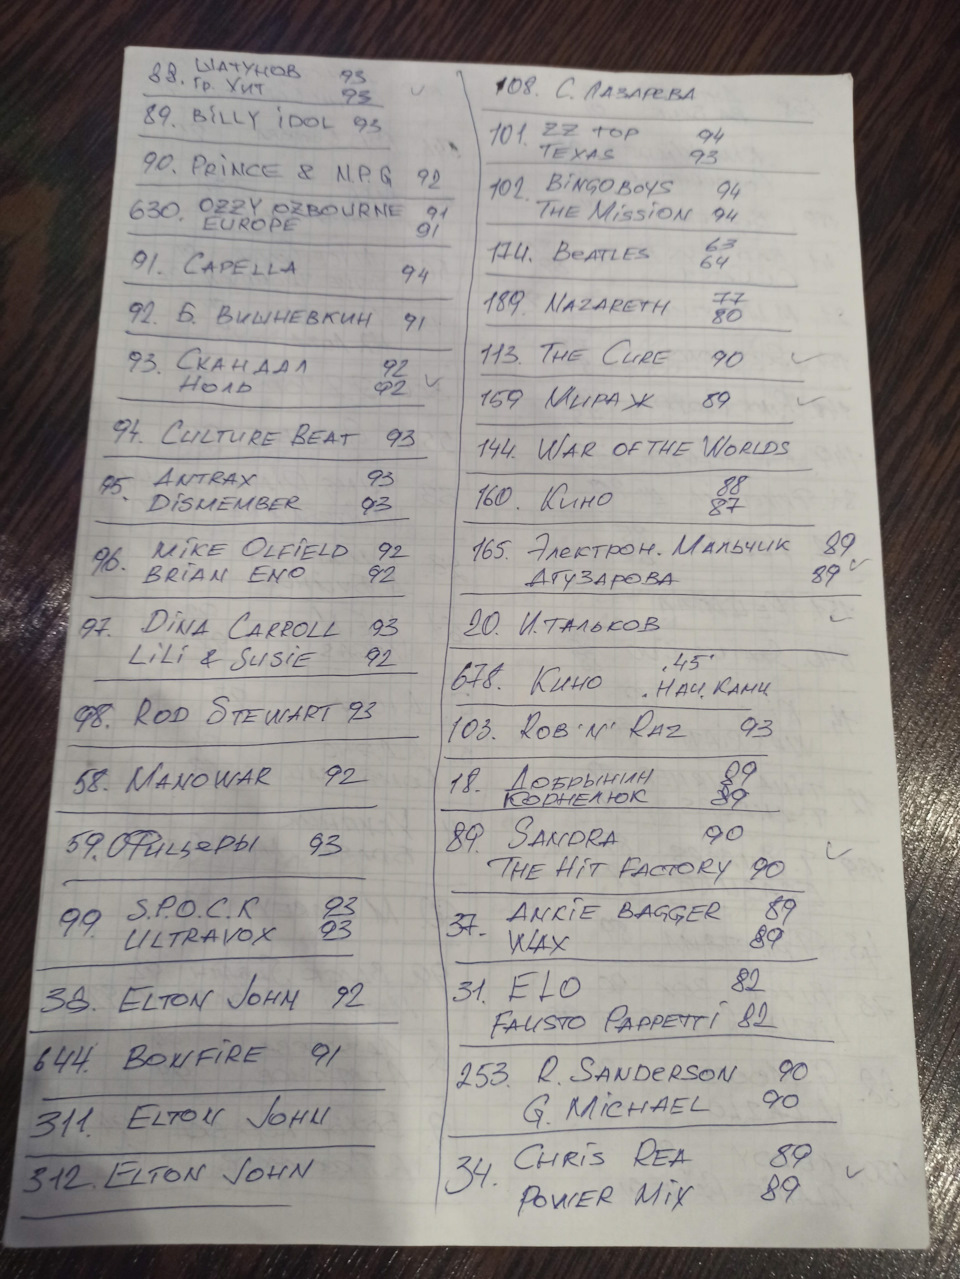 88. Шатунов 93
Гр. Хит 93
89. Billy Idol 93
90. Prince & N.P.G 92
630. Ozzy Ozbourne 91
Europe 91
91. Capella 94
92. Б. Вишневкин 91
93. Скандал 92
Ноль 92
94. Culture Beat 93
95. Antrax 93
Dismember 93
96. Mike Olfield 92
Brian Eno 92
97. Dina Carroll 93
Lili & Susie 92
98. Rod Stewart 93
58. Manowar 92
59. Офицеры 93
99. S.P.O.C.K 93
Ultravox 93
38. Elton John 92
644. Bonfire 91
311. Elton John
312. Elton John
108. С. Лазарева
101. ZZ Top 94
Texas 93
102. Bingoboys 94
The Mission 94
174. Beatles 63
64
189. Nazareth 77
80
113. The Cure 90
159 Мираж 89
144. War of the Worlds
160. Кино 88
87
165. Электрон. Мальчик 89
Агузарова 89
20. И. Тальков
678. Кино "45"
"Нач. Камч
103. Rob 'n' Raz 93
18. Добрынин 89
Корнелюк 89
89. Sandra 90
The Hit Factory 90
37. Ankie Bagger 89
Wax 89
31. ELO 82
Fausto Pappetti 82
253. R. Sanderson 90
G. Michael 90
34. Chris Rea 89
Power Mix 89